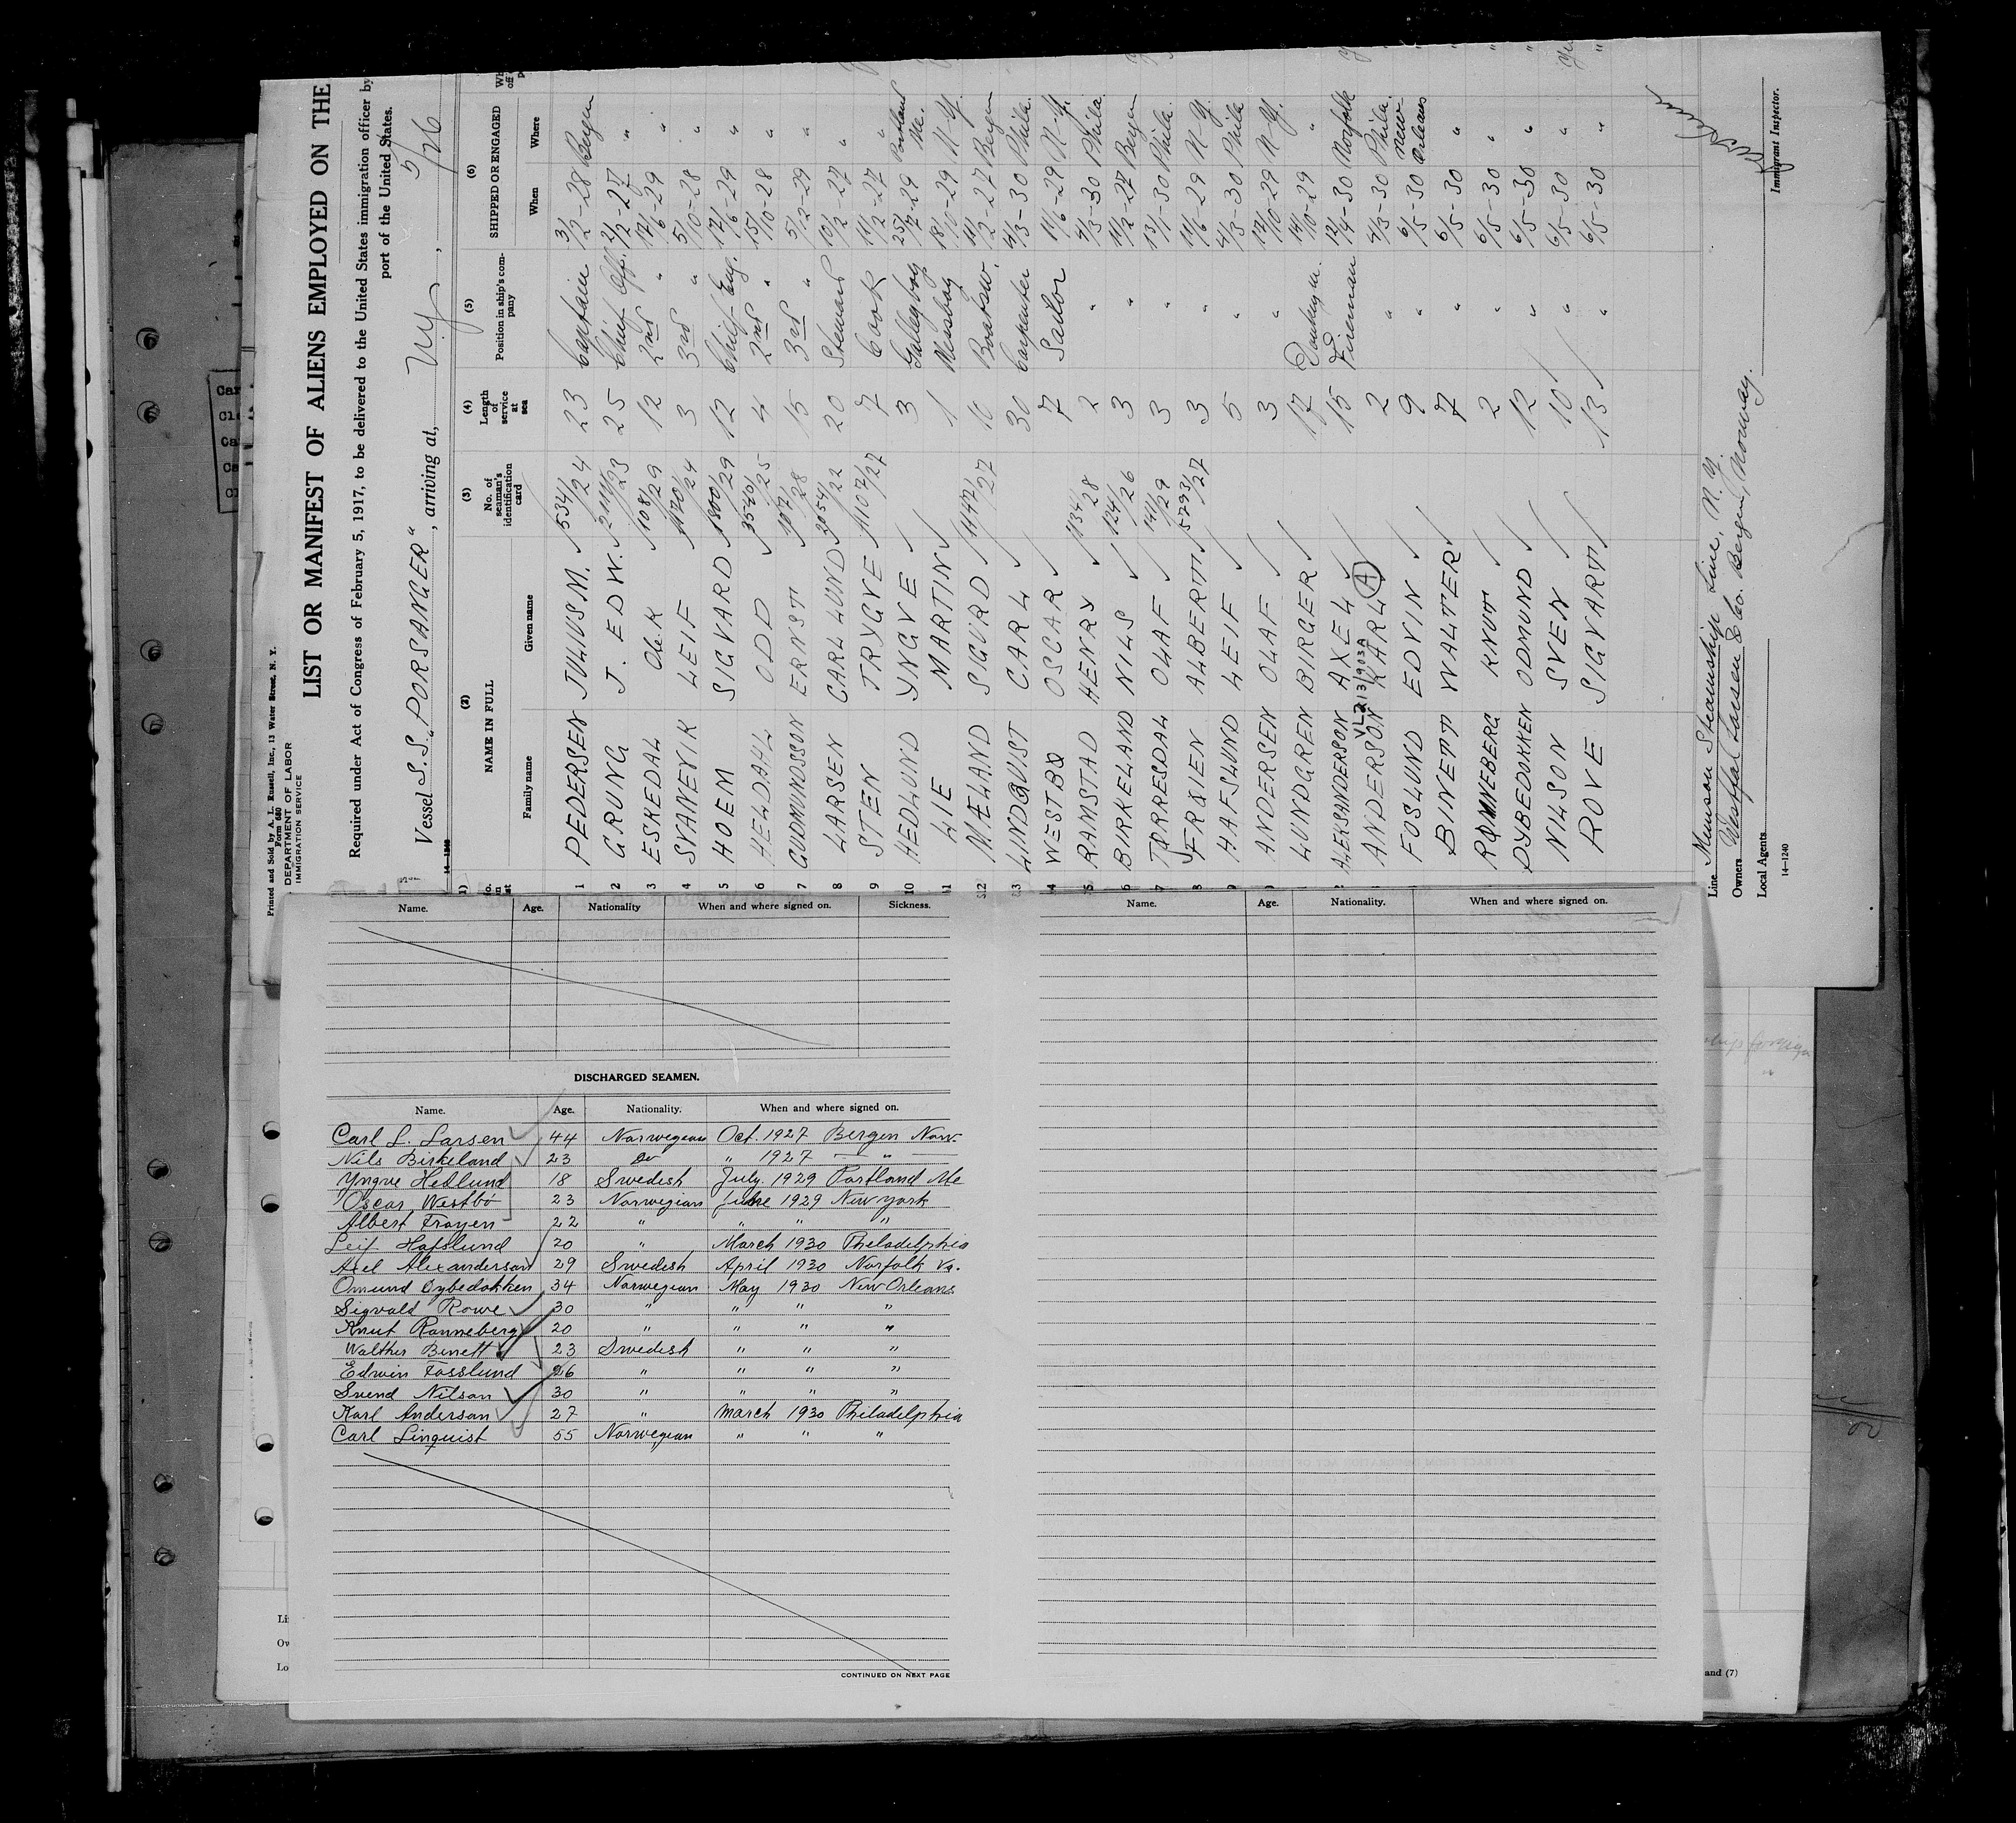 Printed and Sold by A. L. Russell, Inc., 13 Water Street, N. Y.
Form 680
DEPARTMENT OF LABOR
IMMIGRATION SERVICE
LIST OR MANIFEST OF ALIENS EMPLOYED ON THE
Required under Act of Congress of February 5, 1917, to be delivered to the United States immigration officer by
port of the United States.
Vessel S.S. "PORSANGER", arriving at, N.Y., 5/26
(1) (2) (3) (4) (5) (6)
NAME IN FULL No. of seaman's identification card Length of service at sea Position in ship's company SHIPPED OR ENGAGED
Family name Given name When Where
1 PEDERSEN JULIUS M. 534/24 23 Captain 3/2-28 Bergen
2 GRUNG J. EDW. 2111/23 25 Chief Off. 2/12-27 "
3 ESKEDAL 108/29 12 2nd " 12/6-29 "
4 SVANEVIK LEIF 1170/24 3 3rd " 5/10-28 "
5 HOEM SIGVARD 1800/29 12 Chief Eng. 17/6-29 "
6 HELDAHL ODD 3540/25 4 2nd " 15/10-28 "
7 GUDMUNDSSON ERNST 107/28 15 3rd " 5/2-29 "
8 LARSEN CARL LUND 3054/22 20 Steward 10/2-27 "
9 STEN TRYGVE 1107/27 7 Cook 11/2-27 "
10 HEDLUND YNGVE 3 Galleyboy 25/7-29 Portland Me.
11 LIE MARTIN 1 Messboy 18/10-29 N-Y.
12 MÆLAND SIGURD 1147/27 10 Boatsw. 11/2-27 Bergen
13 LINDQUST CARL 30 Carpenter 4/3-30 Phila.
14 WESTBØ OSCAR 7 Sailor 11/6-29 N-Y.
15 RAMSTAD HENRY 1134/28 2 " 4/3-30 Phila.
16 BIRKELAND NILS 124/26 3 " 11/2-27 Bergen
17 TORRESDAL OLAF 141/29 3 " 13/1-30 Phila.
18 FRØIEN ALBERT 5293/27 3 " 11/6-29 N-Y.
19 HAFSLUND LEIF 5 " 4/3-30 Phila
ANDERSEN OLAF 3 " 12/10-29 N-Y.
LUNDGREN BIRGER 17 Donkeym. 14/10-29 "
ALEKSANDERSON AXEL 15 Fireman 12/4-30 Norfolk
VL213/903A
ANDERSON KARL (A) 2 " 4/3-30 Phila.
FOSLUND EDVIN 9 " 6/5-30 New-Orleans
BINETT WALTER 7 " 6/5-30 "
RØNNEBERG KNUT 2 " 6/5-30 "
DYBEDOKKEN ODMUND 12 " 6/5-30 "
NILSON SVEN 10 " 6/5-30 "
ROVE SIGVART 13 " 6/5-30 "
Line Munson Steamship Line, N.Y.
Owners Westfal Larsen & Co. Bergen, Norway.
Local Agents
Immigrant Inspector.
14-1240
Name. Age. Nationality When and where signed on. Sickness.
DISCHARGED SEAMEN.
Name. Age. Nationality. When and where signed on.
Carl L. Larsen 44 Norwegian Oct. 1927 Bergen Norw.
Nils Birkeland 23 Do " 1927 — " —
Yngve Hedlund 18 Swedish July. 1929 Portland Me
Oscar Westbö 23 Norwegian June 1929 New york
Albert Froyen 22 " " " "
Leif Hafslund 20 " March 1930 Philadelphia
Axel Alexanderson 29 Swedish April 1930 Norfolk Va.
Omund Dybedokken 34 Norwegian May 1930 New Orleans
Sigvald Rowe 30 " " " "
Knut Ronneberg 20 " " " "
Walther Binett 23 Swedish " " "
Edwin Fosslund 26 " " " "
Svend Nilson 30 " " " "
Karl Anderson 27 " March 1930 Philadelphia
Carl Linquist 55 Norwegian " " "
CONTINUED ON NEXT PAGE
Name. Age. Nationality. When and where signed on.
and (7)